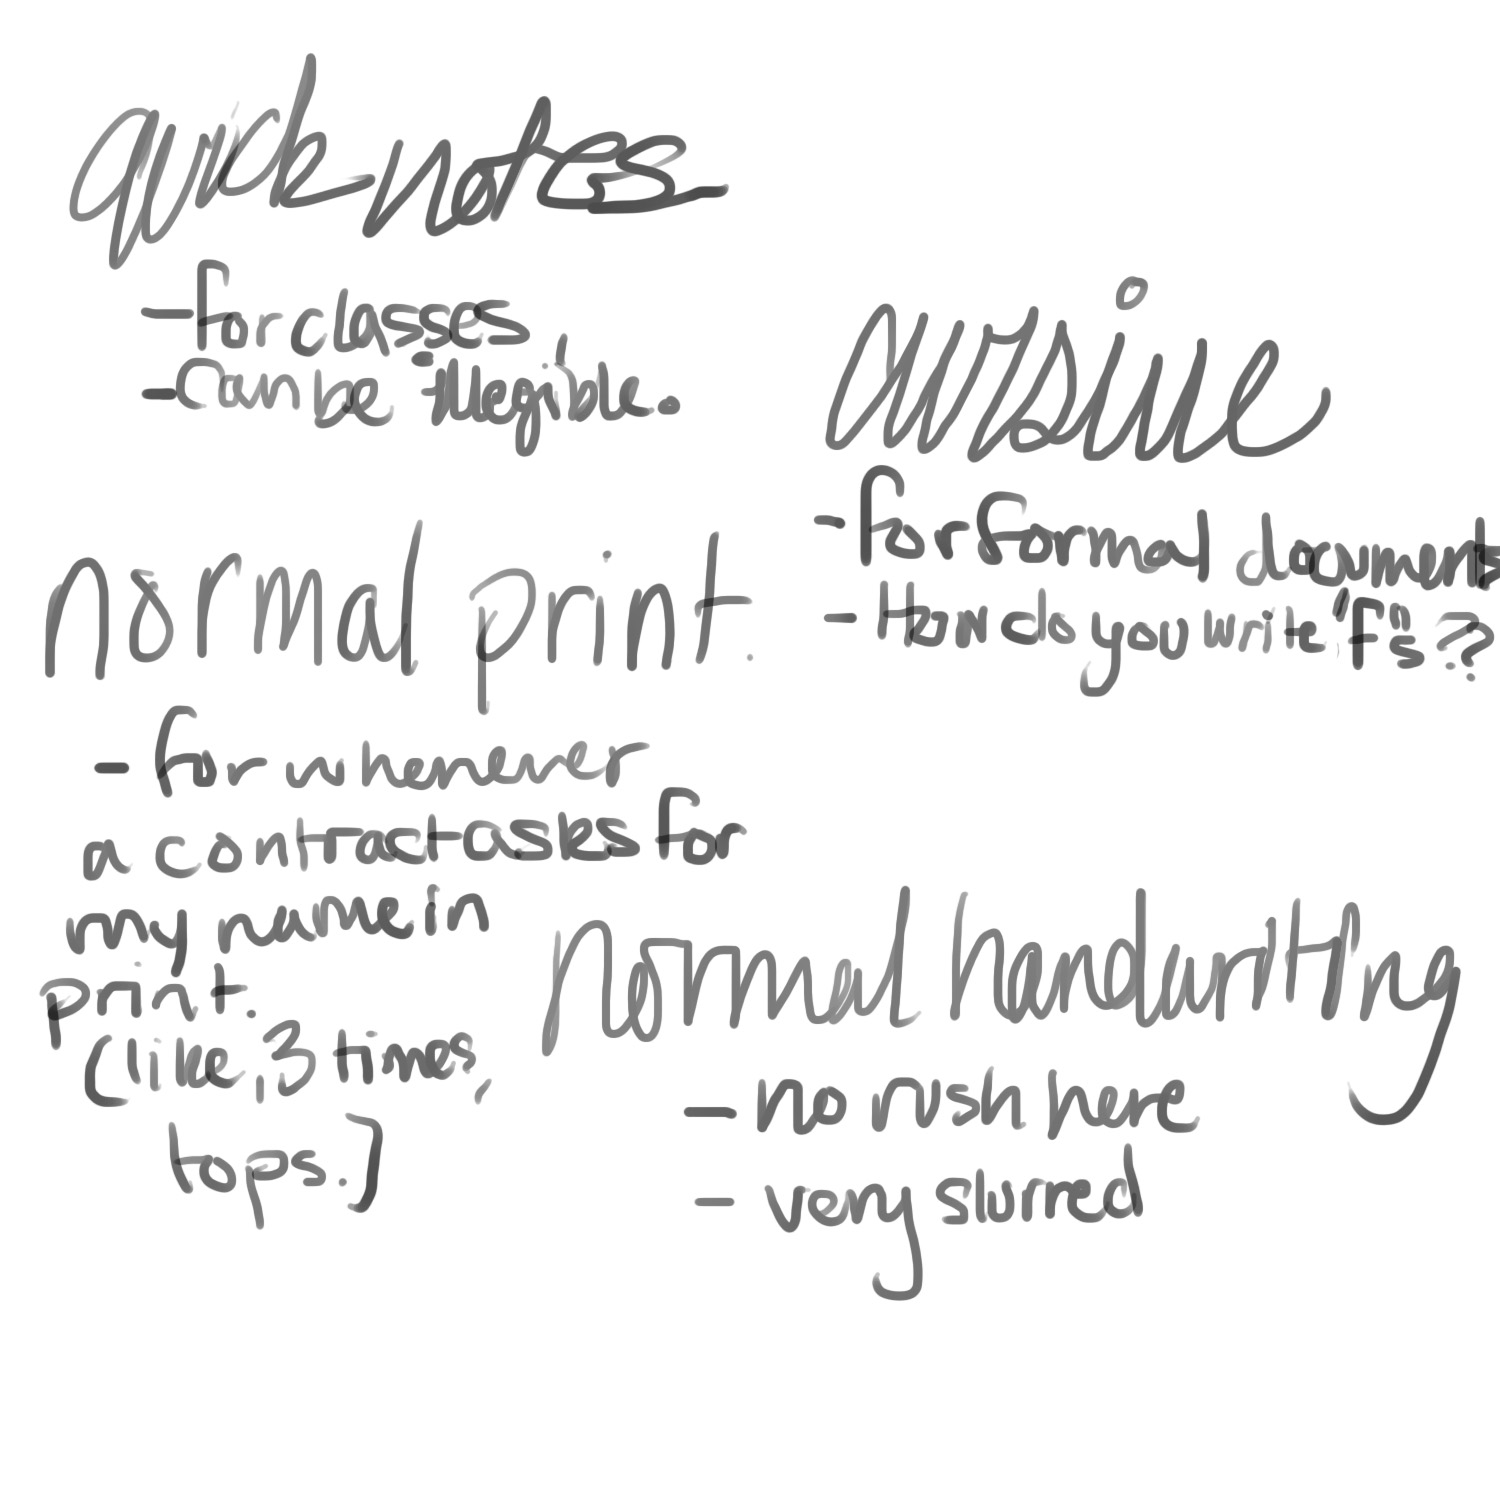 quick notes
- for classes,
- Can be illegible.
cursive
- for formal documents
- How do you write "F"s??
normal print.
- for whenever
a contract asks for
my name in
print.
(like, 3 times,
tops.)
normal handwriting
- no rush here
- very slurred